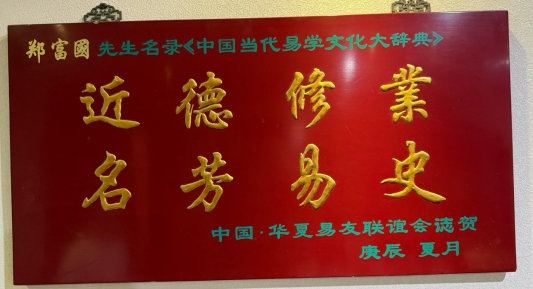 郑富國先生名录《中国当代易学文化大辞典》
近德修業
名芳易史
中国·华夏易友联谊会誌贺
庚辰 夏月